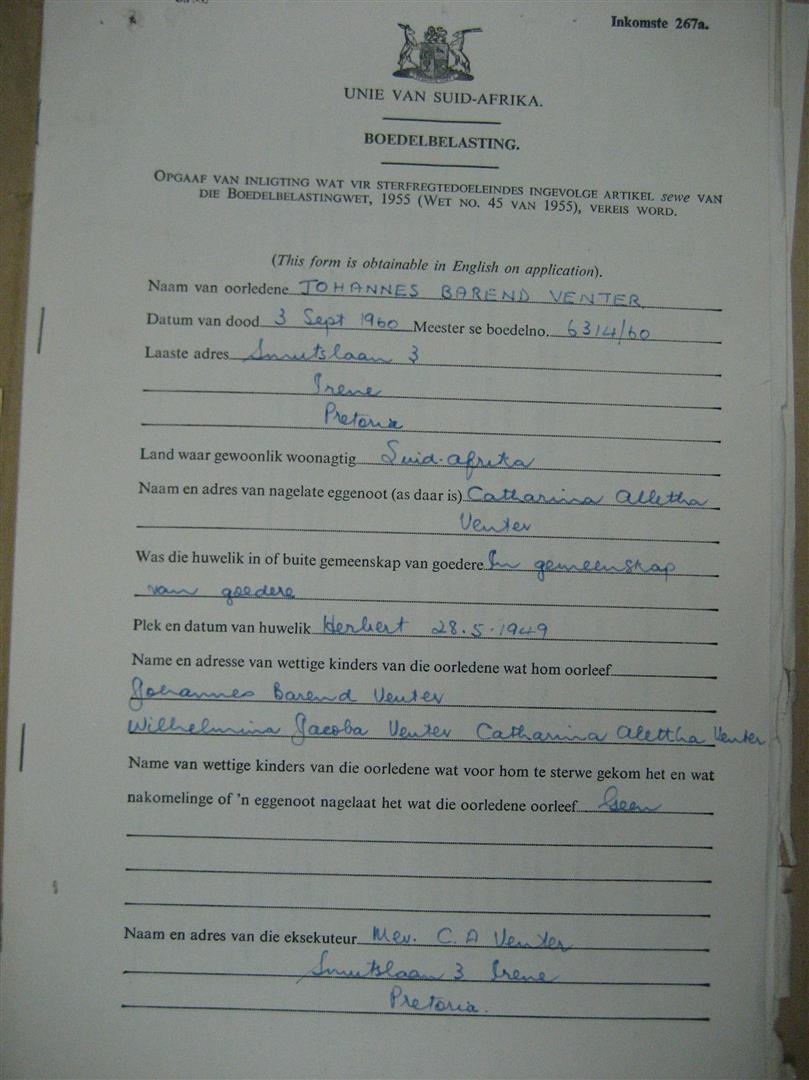 Inkomste 267a.
UNIE VAN SUID-AFRIKA.
BOEDELBELASTING.
OPGAAF VAN INLIGTING WAT VIR STERFREGTEDOELEINDES INGEVOLGE ARTIKEL sewe VAN
DIE BOEDELBELASTINGWET, 1955 (WET NO. 45 VAN 1955), VEREIS WORD.
(This form is obtainable in English on application).
Naam van oorledene JOHANNES BAREND VENTER
Datum van dood 3 Sept 1960 Meester se boedelno. 6314/60
Laaste adres Smutslaan 3
Irene
Pretoria
Land waar gewoonlik woonagtig Suid-Afrika
Naam en adres van nagelate eggenoot (as daar is) Catharina Alletha
Venter
Was die huwelik in of buite gemeenskap van goedere In gemeenskap
van goedere
Plek en datum van huwelik Herbert 28.5.1949
Name en adresse van wettige kinders van die oorledene wat hom oorleef
Johannes Barend Venter
Wilhelmina Jacoba Venter Catharina Alettha Venter
Name van wettige kinders van die oorledene wat voor hom te sterwe gekom het en wat
nakomelinge of 'n eggenoot nagelaat het wat die oorledene oorleef Geen
Naam en adres van die eksekuteur Mev. C. A Venter
Smutslaan 3 Irene
Pretoria.